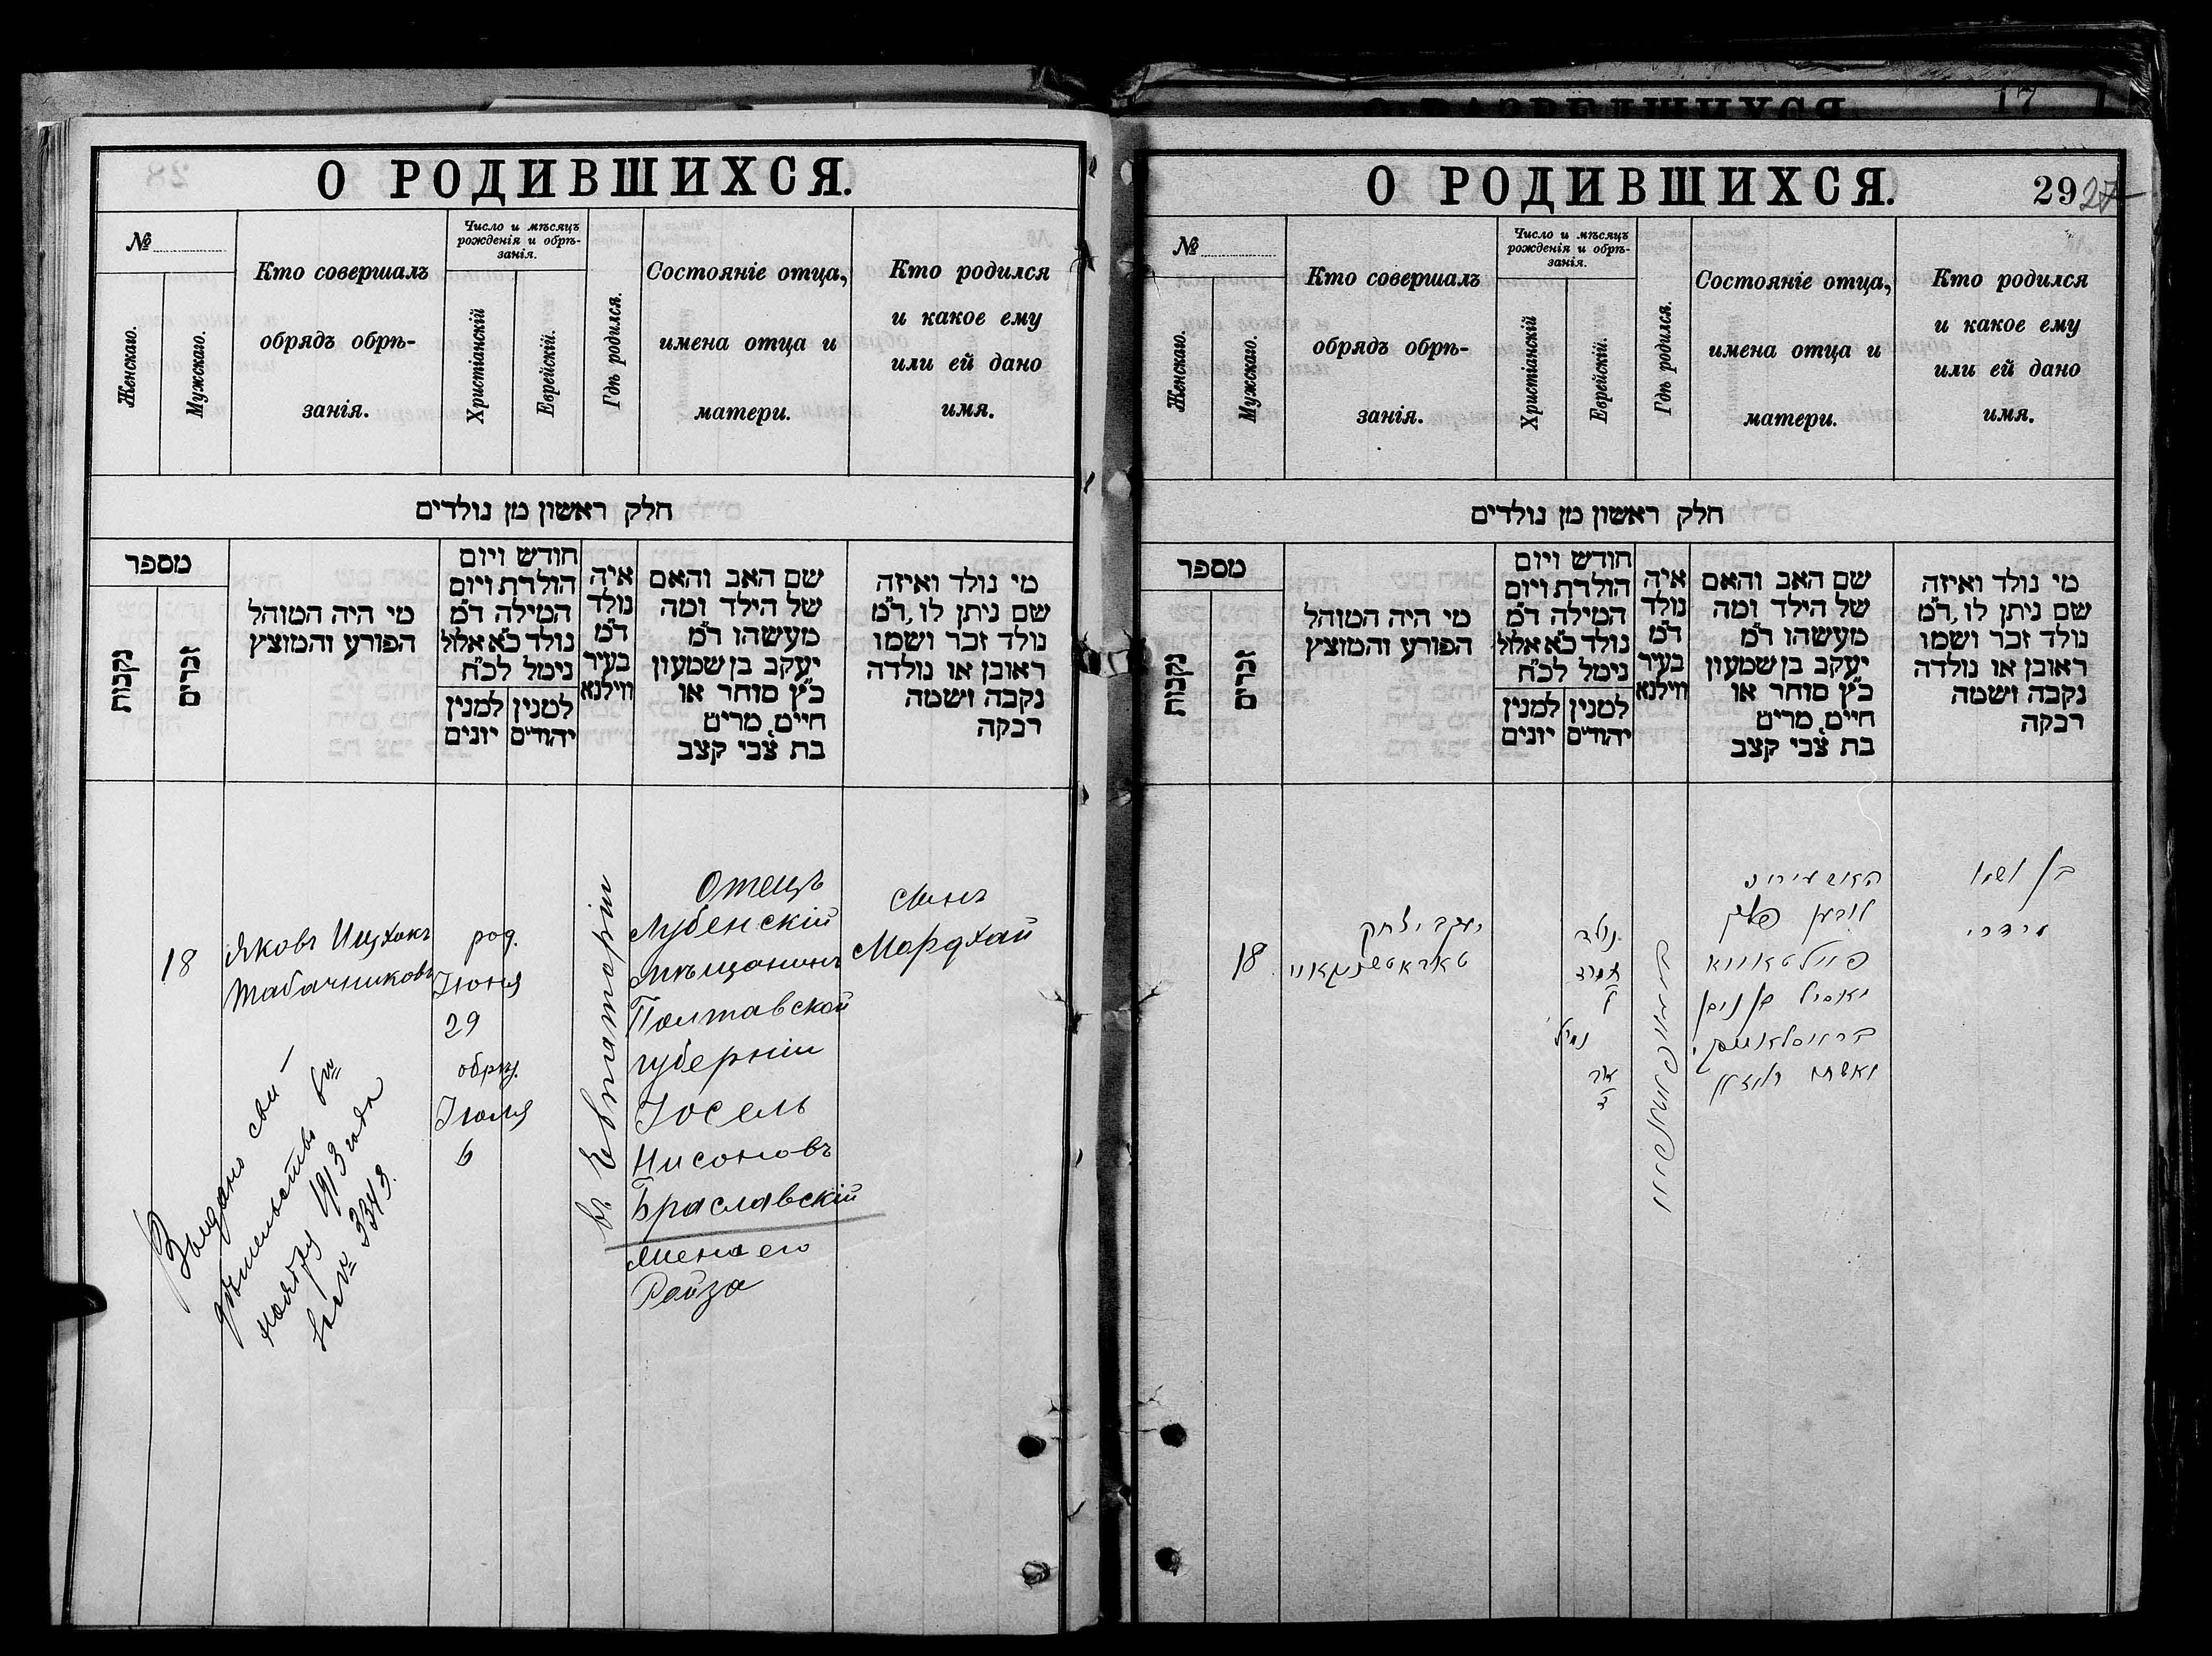 О РОДИВШИХСЯ.
№
Женскаго.
Мужскаго.
Кто совершалъ
обрядъ обрѣ-
занія.
Число и мѣсяцъ
рожденія и обрѣ-
занія.
Христіанскій
Еврейскій.
Гдѣ родился.
Состояніе отца,
имена отца и
матери.
Кто родился
и какое ему
или ей дано
имя.
חלק ראשון מן נולדים
מספר
נקבות
זכרים
מי היה המוהל
הפורע והמוצץ
חודש ויום
הולדת ויום
המילה ד״מ
נולד כ״א אלול
נימל לכ״ח
למנין יהודים
למנין יונים
איה
נולד
ד״מ
בעיר
ווילנא
שם האב והאם
של הילד ומה
מעשהו ד״מ
יעקב בן שמעון
כ״ץ סוחר או
חיים, מרים
בת צבי קצב
מי נולד ואיזה
שם ניתן לו, ד״מ
נולד זכר ושמו
ראובן או נולדה
נקבה ושמה
רבקה
18
Яковъ Ицхокъ
Табачниковъ
род.
Іюня
29
обрѣз.
Іюля
6
въ Евпаторіи
Отецъ
Лубенскій
мѣщанинъ
Полтавской
губерніи
Іосель
Нисоновъ
Браславскій
жена его
Рейза
сынъ
Мордхай
Выдано сви-
дѣтельство
ноября 1913 года
за № 3343.
17
О РОДИВШИХСЯ.
29
27
№
Женскаго.
Мужскаго.
Кто совершалъ
обрядъ обрѣ-
занія.
Число и мѣсяцъ
рожденія и обрѣ-
занія.
Христіанскій
Еврейскій.
Гдѣ родился.
Состояніе отца,
имена отца и
матери.
Кто родился
и какое ему
или ей дано
имя.
חלק ראשון מן נולדים
מספר
נקבות
זכרים
מי היה המוהל
הפורע והמוצץ
חודש ויום
הולדת ויום
המילה ד״מ
נולד כ״א אלול
נימל לכ״ח
למנין יהודים
למנין יונים
איה
נולד
ד״מ
בעיר
ווילנא
שם האב והאם
של הילד ומה
מעשהו ד״מ
יעקב בן שמעון
כ״ץ סוחר או
חיים, מרים
בת צבי קצב
מי נולד ואיזה
שם ניתן לו, ד״מ
נולד זכר ושמו
ראובן או נולדה
נקבה ושמה
רבקה
18
יעקב יצחק
נולד
נימול
פולטאווא
יאסיל בן ניסן
בראסלאווסקי
ואשתו רייזע
בן ושמו
מרדכי